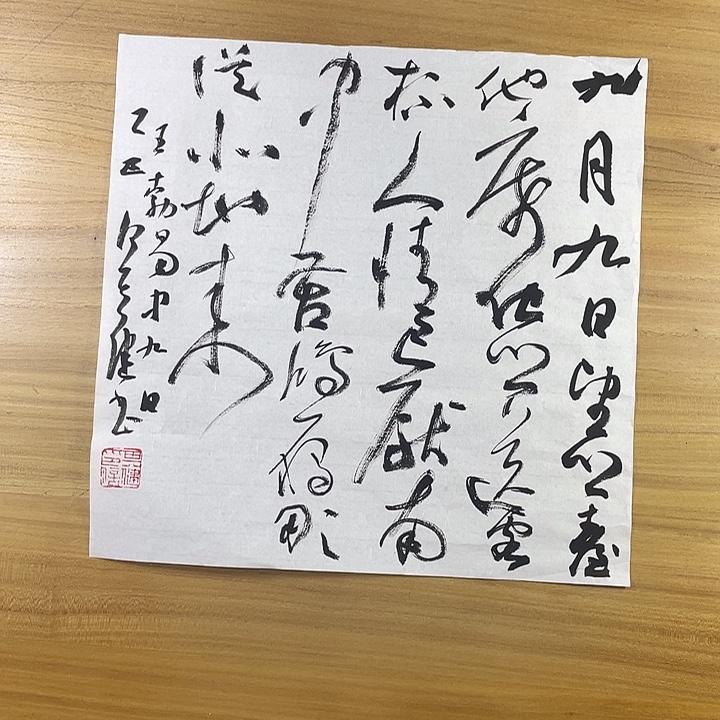 九月九日望鄉臺
他席他鄉送客
杯人情已厭南
中苦鴻雁那
從北地来
王勃蜀中九日
乙巳 建书